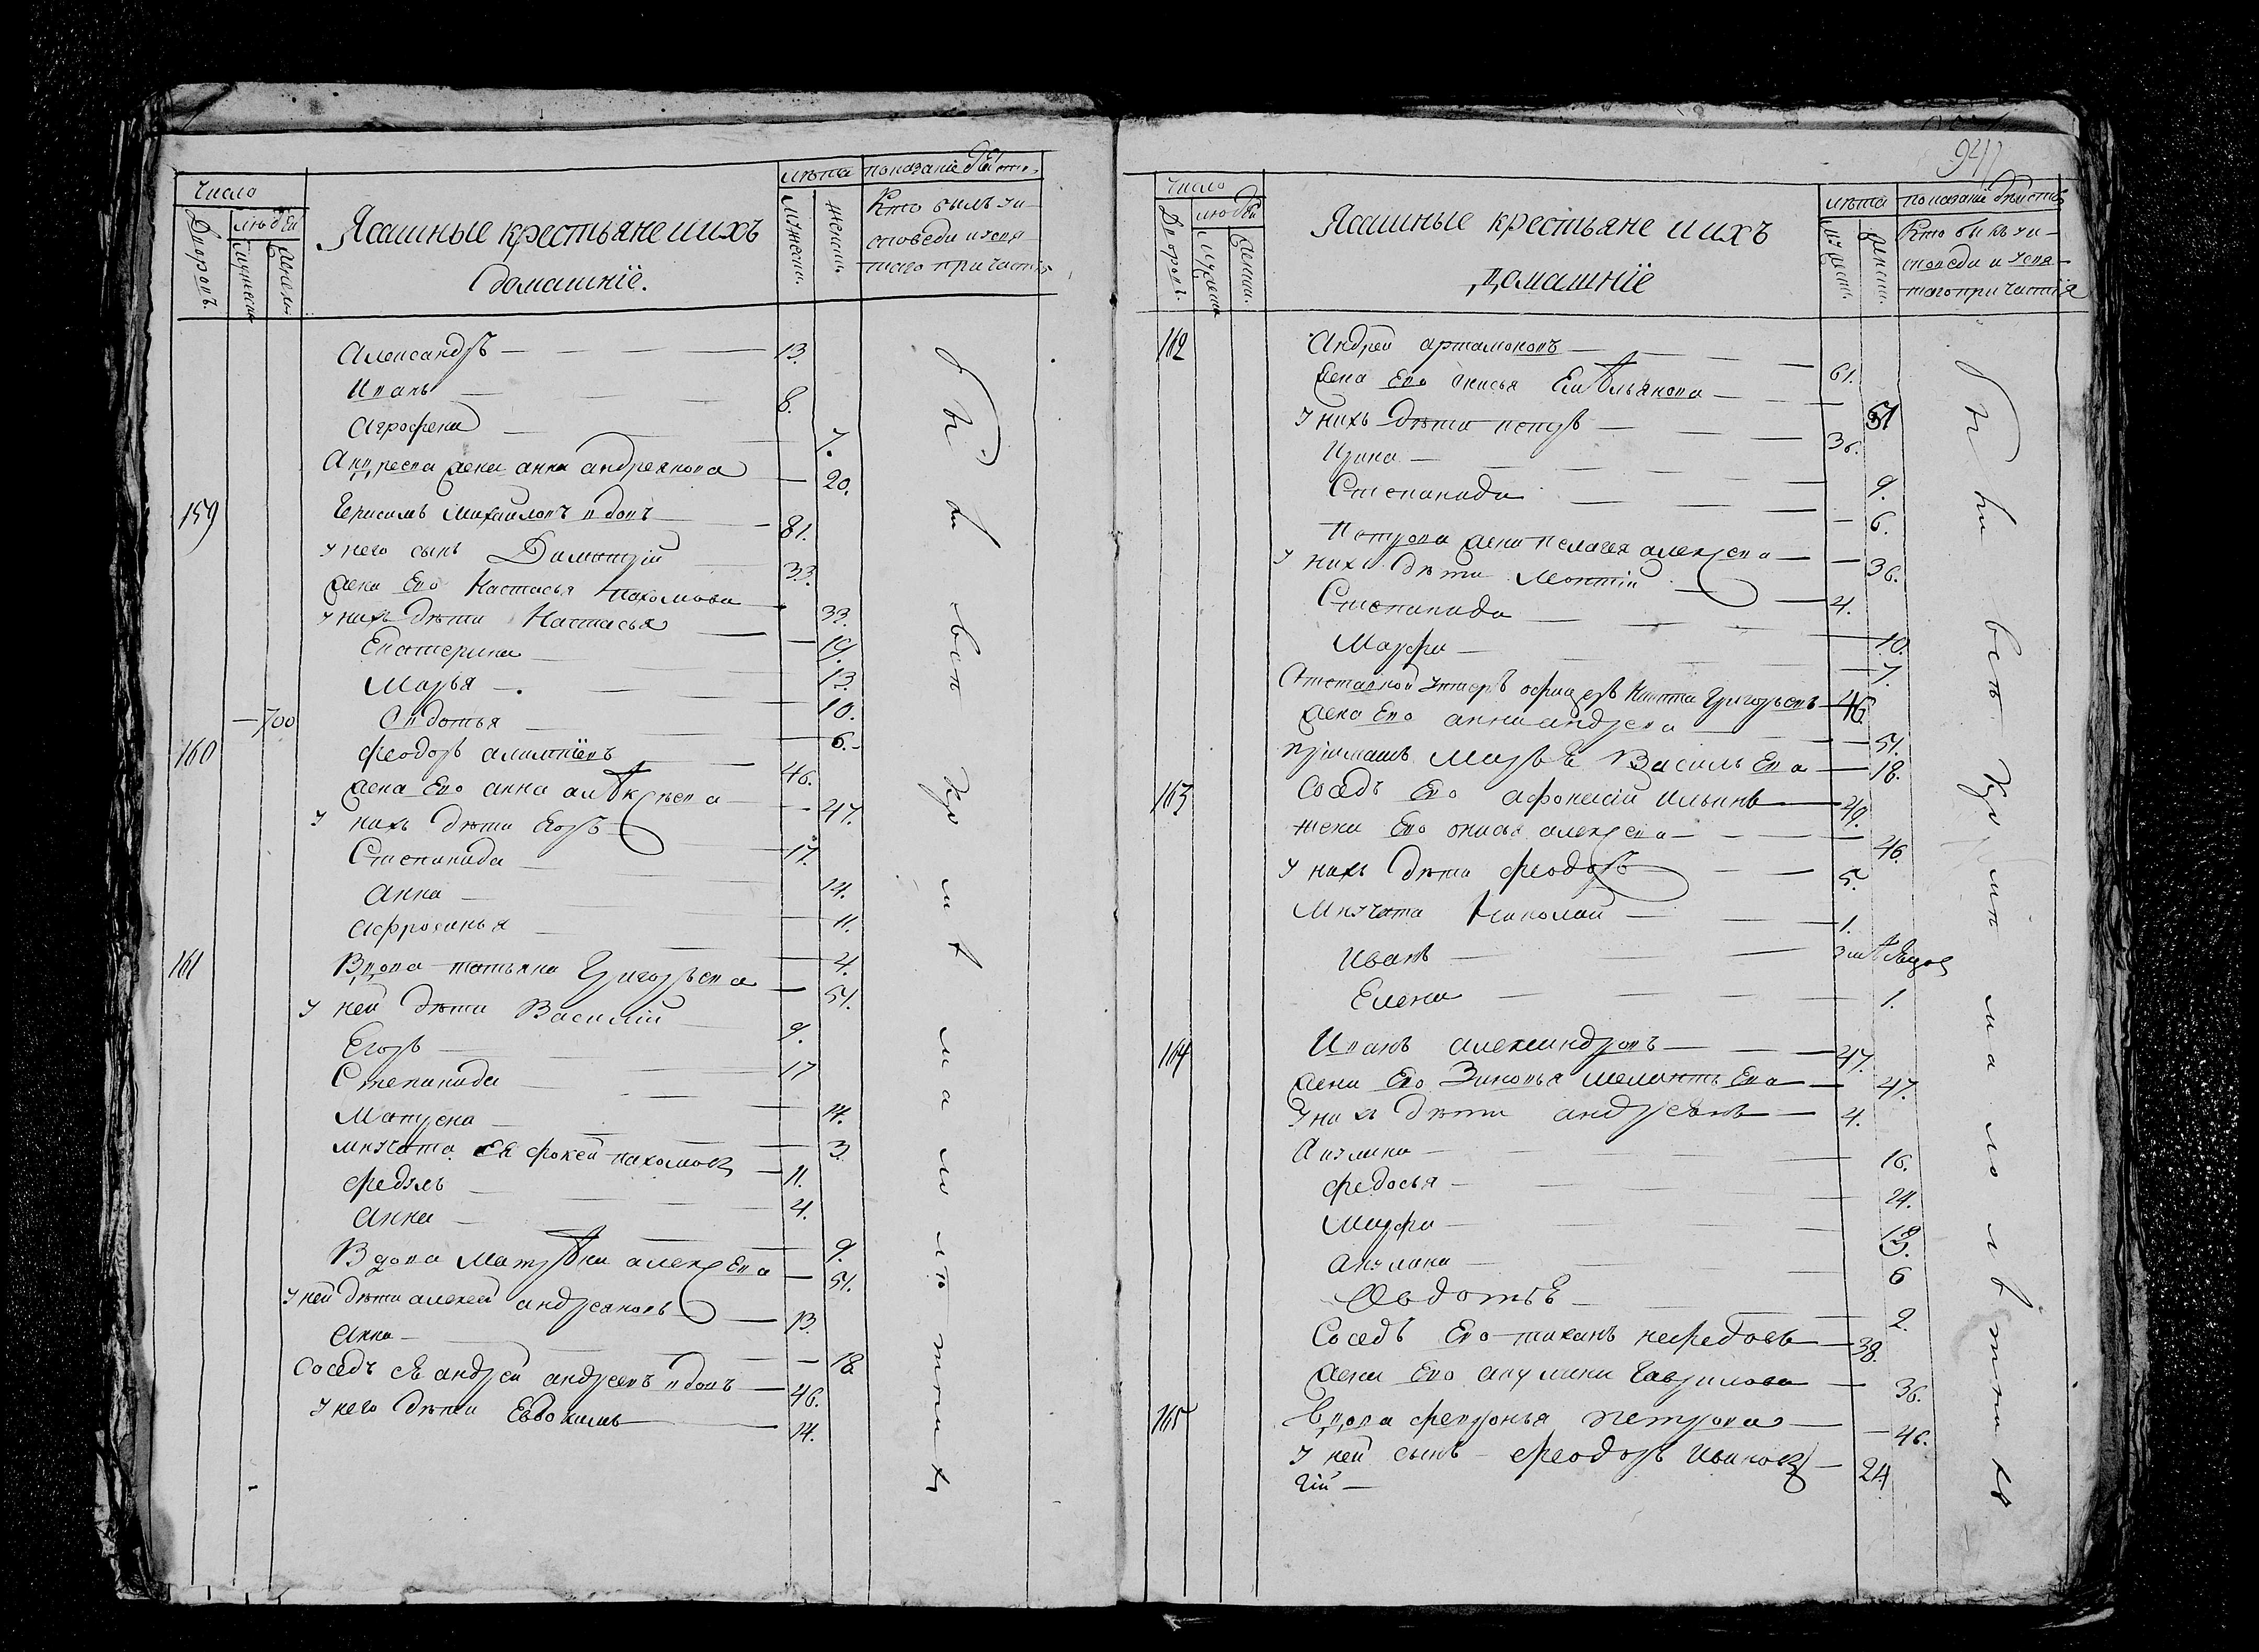 Число
людей
Дворовъ.
Мужеска
Женска
Ясашные крестьяне и ихъ
домашніе.
лѣта
мужеск.
женск.
показаніе дѣйств.
Кто былъ у и-
споведи и у свя-
таго причастія
Александръ — 13.
Иванъ — 8.
Агрофена — 7.
Андреева жена анна андреянова — 20.
159 Герисимъ Михаиловъ вдовъ — 81.
у него сынъ Димитрій — 33.
жена Ево Настасья пахомова — 33.
у нихъ дѣти Настасья — 19.
Екатерина — 13.
Марья — 10.
— 700 Овдотья — 6.
160 Феодоръ — 46.
жена Ево анна алеѯѣева — 47.
у нихъ дѣти Егоръ — 17.
Степанида — 14.
Анна — 11.
Афросинья — 4.
161 Вдова татьяна Григорьева — 51.
у ней дѣти Василій — 9.
Егоръ — 17
Степанида — 14.
Матрена — 3
внучата ея фокей пахомовъ — 11.
Федулъ — 4.
Анна — 9.
Вдова Матрена алеѯева — 51.
у ней дѣти алеѯей андреяновъ — 13.
Анна — 18
Соседъ ея андрей андреевъ вдовъ — 46.
у него дѣти Евдокимъ — 14.
94
Число
людей
Дворовъ.
мужеска
женска.
Ясашные крестьяне и ихъ
домашніе
лѣта
мужеск.
женск.
показаніе дѣйств
Кто былъ у и-
споведи и у свя-
таго причастія
162 Андрей артамоновъ — 61.
жена Ево анисья Емельянова — 51
у нихъ дѣти петръ — 36.
Ирина — 9.
Степанида — 6.
Петрова жена пелагея алеѯева — 36.
у нихъ дѣти Леонтій — 4.
Степанида — 10.
Марфа — 7.
Отставной унтеръ офицеръ Никита Григорьевъ — 46
жена Ево анна андреева — 51.
примашъ Марья Васильева — 18.
163 Соседъ Ево афонасій ильинъ — 49.
жена Ево онисья алеѯева — 46.
у нихъ дѣти феодоръ — 5.
Внучата Николай — 1.
Иванъ —
Елена — 1.
164 Иванъ алеѯандровъ — 47.
жена Ево Зиновья мелентьева — 47.
у нихъ дѣти андреянъ — 4.
Акулина — 16.
Федосья — 14.
Марфа —
Акулина — 6
Овдотья — 2.
Соседъ Ево тиханъ нефедовъ — 38.
жена Ево акулина гаврилова — 36.
165 Вдова февронья петрова — 46.
у ней сынъ феодоръ ивановъ — 24